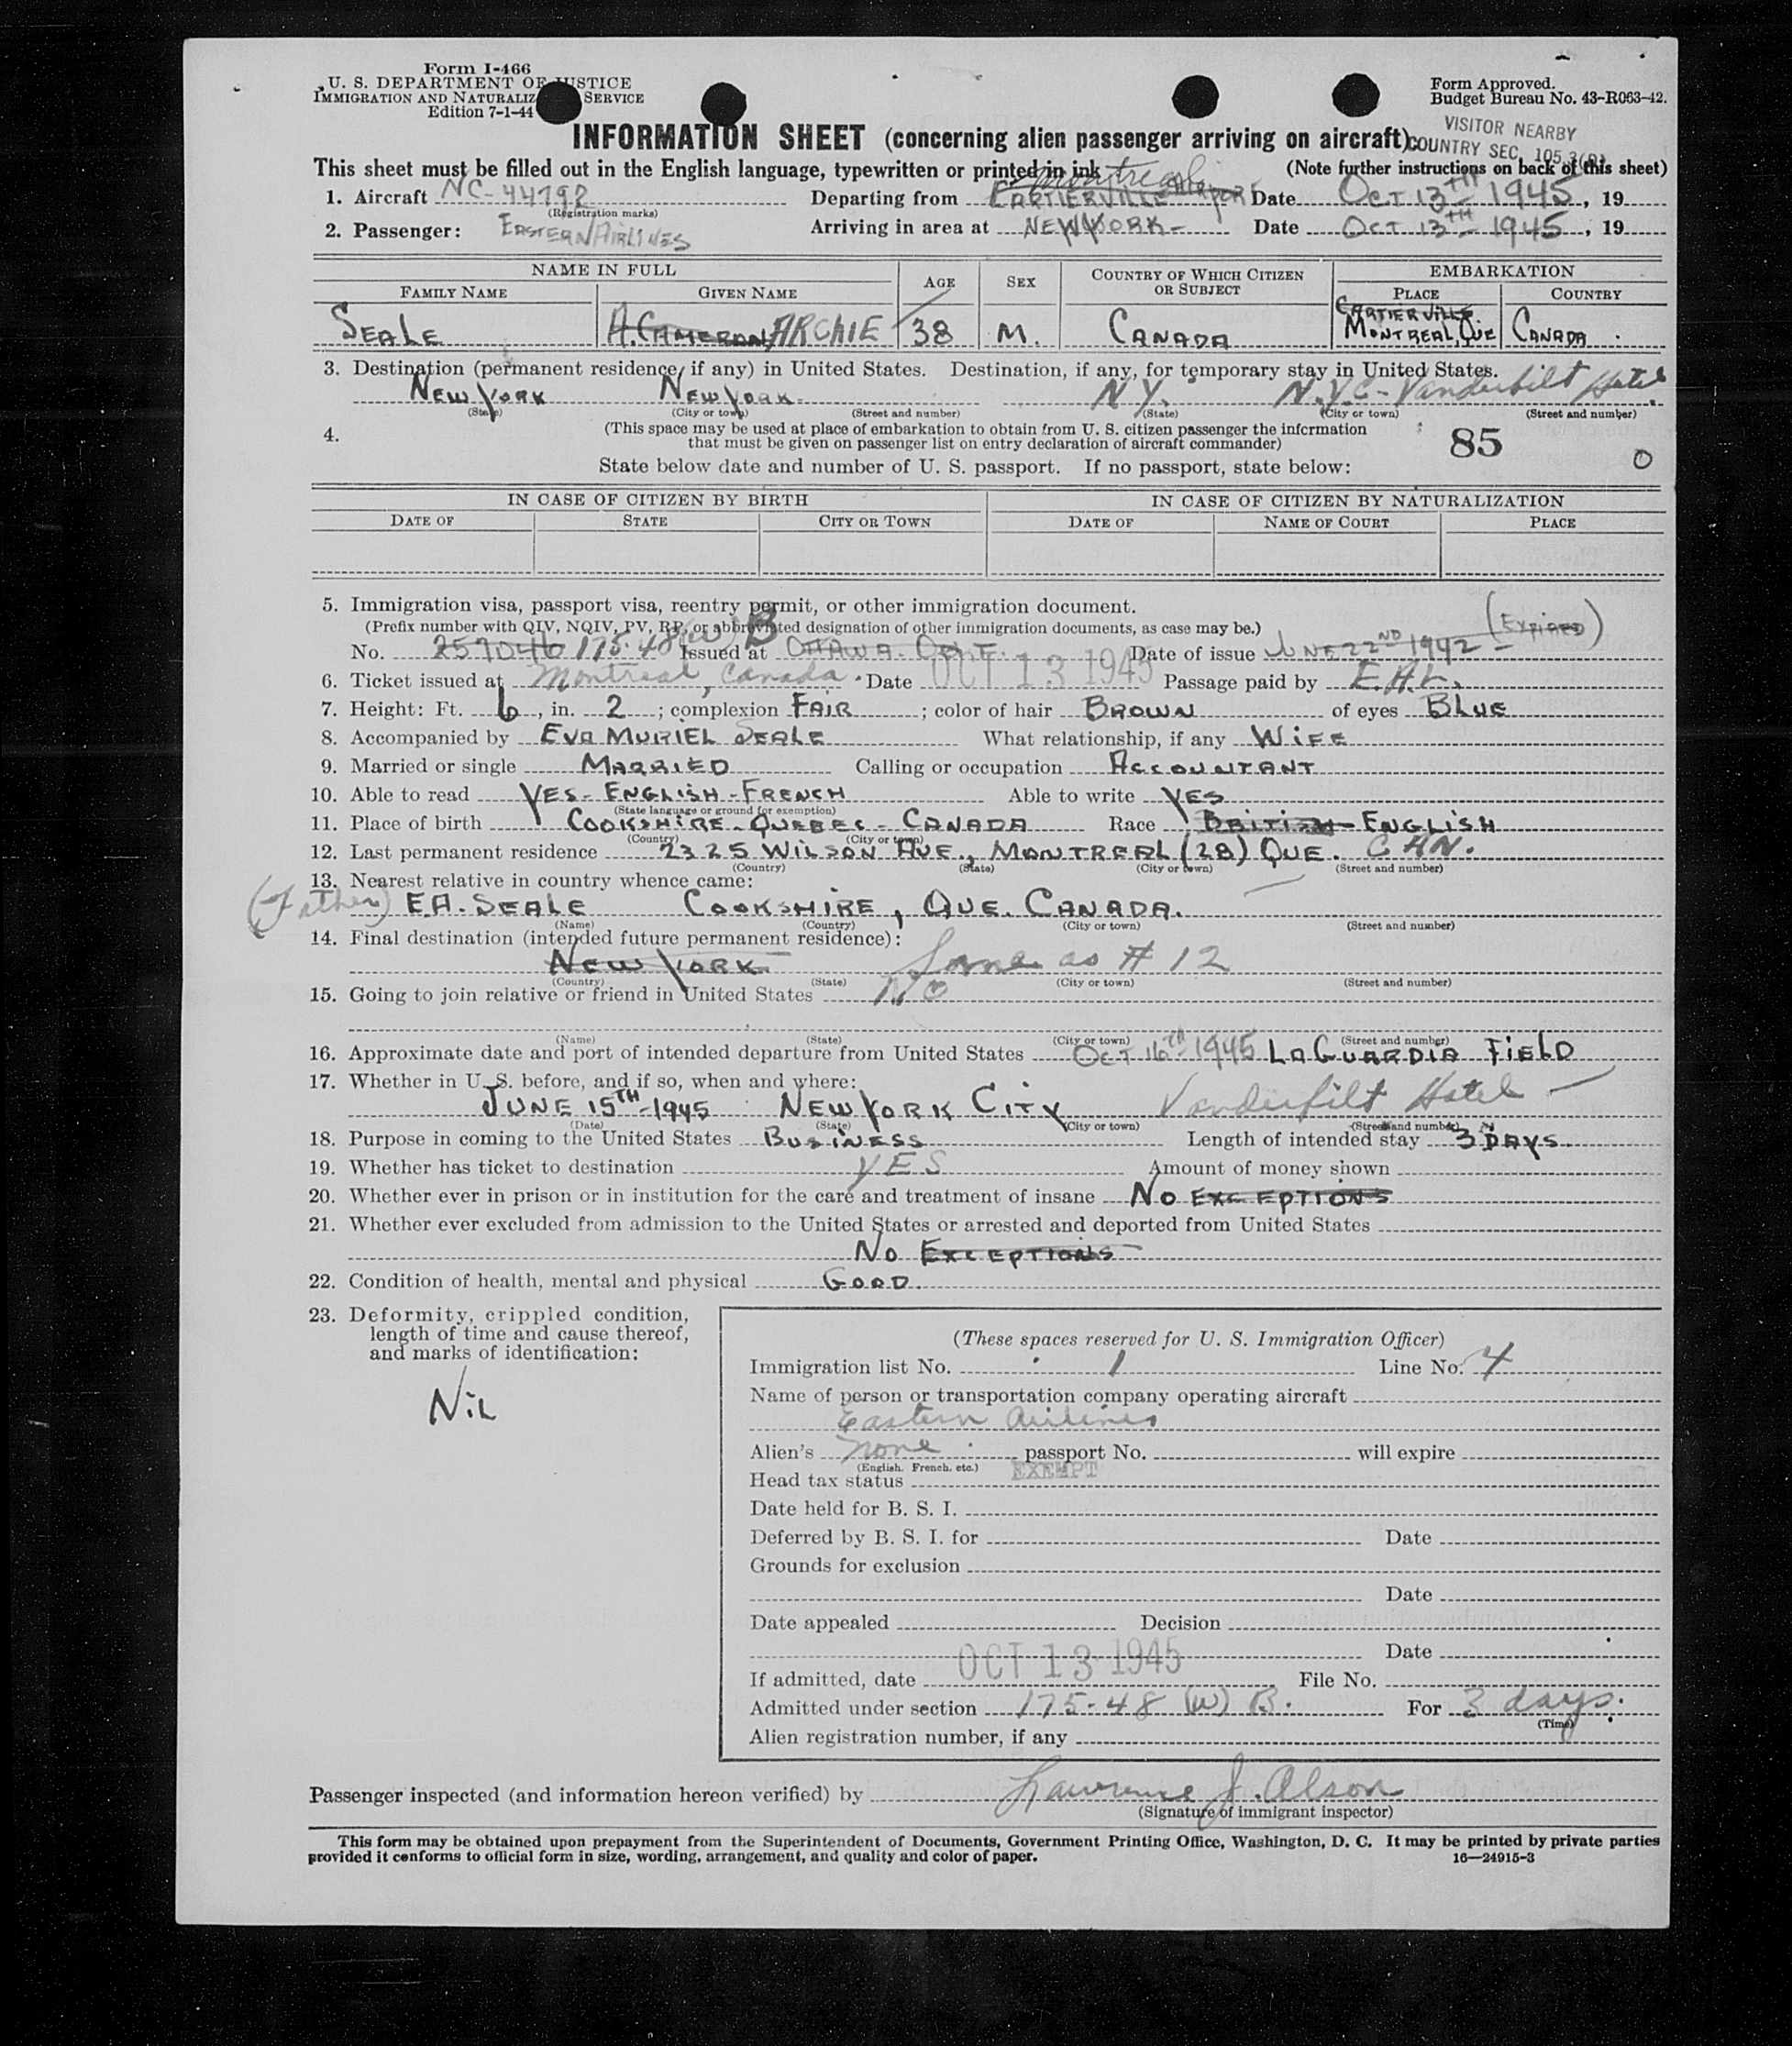 Form I-466
U. S. DEPARTMENT OF JUSTICE
IMMIGRATION AND NATURALIZ SERVICE
Edition 7-1-44
Form Approved.
Budget Bureau No. 43-R063-42.
VISITOR NEARBY
COUNTRY SEC. 105.3(B)
INFORMATION SHEET (concerning alien passenger arriving on aircraft)
This sheet must be filled out in the English language, typewritten or printed in ink (Note further instructions on back of this sheet)
Montreal
1. Aircraft NC-44792 Departing from CARTIERVILLE AIRPORT Date OCT 13TH 1945, 19
(Registration marks)
2. Passenger: EASTERN AIRLINES Arriving in area at NEW YORK- Date OCT 13TH 1945, 19
NAME IN FULL AGE SEX COUNTRY OF WHICH CITIZEN OR SUBJECT EMBARKATION
FAMILY NAME GIVEN NAME PLACE COUNTRY
SEALE A. CAMERON ARCHIE 38 M. CANADA CARTIERVILLE MONTREAL, QUE CANADA
3. Destination (permanent residence, if any) in United States. Destination, if any, for temporary stay in United States.
NEW YORK NEW YORK N.Y. N.Y.C- Vanderbilt Hotel
(State) (City or town) (Street and number) (State) (City or town) (Street and number)
4. (This space may be used at place of embarkation to obtain from U. S. citizen passenger the information
that must be given on passenger list on entry declaration of aircraft commander)
85 0
State below date and number of U. S. passport. If no passport, state below:
IN CASE OF CITIZEN BY BIRTH IN CASE OF CITIZEN BY NATURALIZATION
DATE OF STATE CITY OR TOWN DATE OF NAME OF COURT PLACE
5. Immigration visa, passport visa, reentry permit, or other immigration document.
(Prefix number with QIV, NQIV, PV, RP, or abbreviated designation of other immigration documents, as case may be.)
No. 257046 175.48(W) B Issued at OTTAWA. ONT. Date of issue JUNE 22ND 1942 - (EXPIRED)
6. Ticket issued at Montreal, Canada. Date OCT 13 1945 Passage paid by E.A.L.
7. Height: Ft. 6, in. 2; complexion FAIR; color of hair BROWN of eyes BLUE
8. Accompanied by EVA MURIEL SEALE What relationship, if any WIFE
9. Married or single MARRIED Calling or occupation ACCOUNTANT
10. Able to read YES- ENGLISH-FRENCH Able to write YES
(State language or ground for exemption)
11. Place of birth COOKSHIRE- QUEBEC- CANADA Race BRITISH- ENGLISH
(Country) (City or town)
12. Last permanent residence 2325 WILSON AVE., MONTREAL (28) QUE. CAN.
(Country) (State) (City or town) (Street and number)
13. Nearest relative in country whence came:
(Father) E.A. SEALE COOKSHIRE, QUE. CANADA.
(Name) (Country) (City or town) (Street and number)
14. Final destination (intended future permanent residence):
NEW YORK. Same as # 12
(Country) (State) (City or town) (Street and number)
15. Going to join relative or friend in United States NO
(Name) (State) (City or town) (Street and number)
16. Approximate date and port of intended departure from United States OCT 16TH-1945 LAGUARDIA FIELD
17. Whether in U. S. before, and if so, when and where:
JUNE 15TH-1945 NEW YORK CITY Vanderbilt Hotel -
(Date) (State) (City or town) (Street and number)
18. Purpose in coming to the United States BUSINESS Length of intended stay 3 DAYS.
19. Whether has ticket to destination YES Amount of money shown
20. Whether ever in prison or in institution for the care and treatment of insane NO EXCEPTIONS
21. Whether ever excluded from admission to the United States or arrested and deported from United States
NO EXCEPTIONS
22. Condition of health, mental and physical GOOD.
23. Deformity, crippled condition,
length of time and cause thereof,
and marks of identification:
NIL
(These spaces reserved for U. S. Immigration Officer)
Immigration list No. 1 Line No. 4
Name of person or transportation company operating aircraft
Eastern Airlines
Alien's none passport No. will expire
(English, French, etc.)
Head tax status EXEMPT
Date held for B. S. I.
Deferred by B. S. I. for Date
Grounds for exclusion
Date
Date appealed Decision
Date
If admitted, date OCT 13 1945 File No.
Admitted under section 175.48 (W) B. For 3 days.
(Time)
Alien registration number, if any
Passenger inspected (and information hereon verified) by Lawrence J. Alson
(Signature of immigrant inspector)
This form may be obtained upon prepayment from the Superintendent of Documents, Government Printing Office, Washington, D. C. It may be printed by private parties
provided it conforms to official form in size, wording, arrangement, and quality and color of paper. 16—24915-3